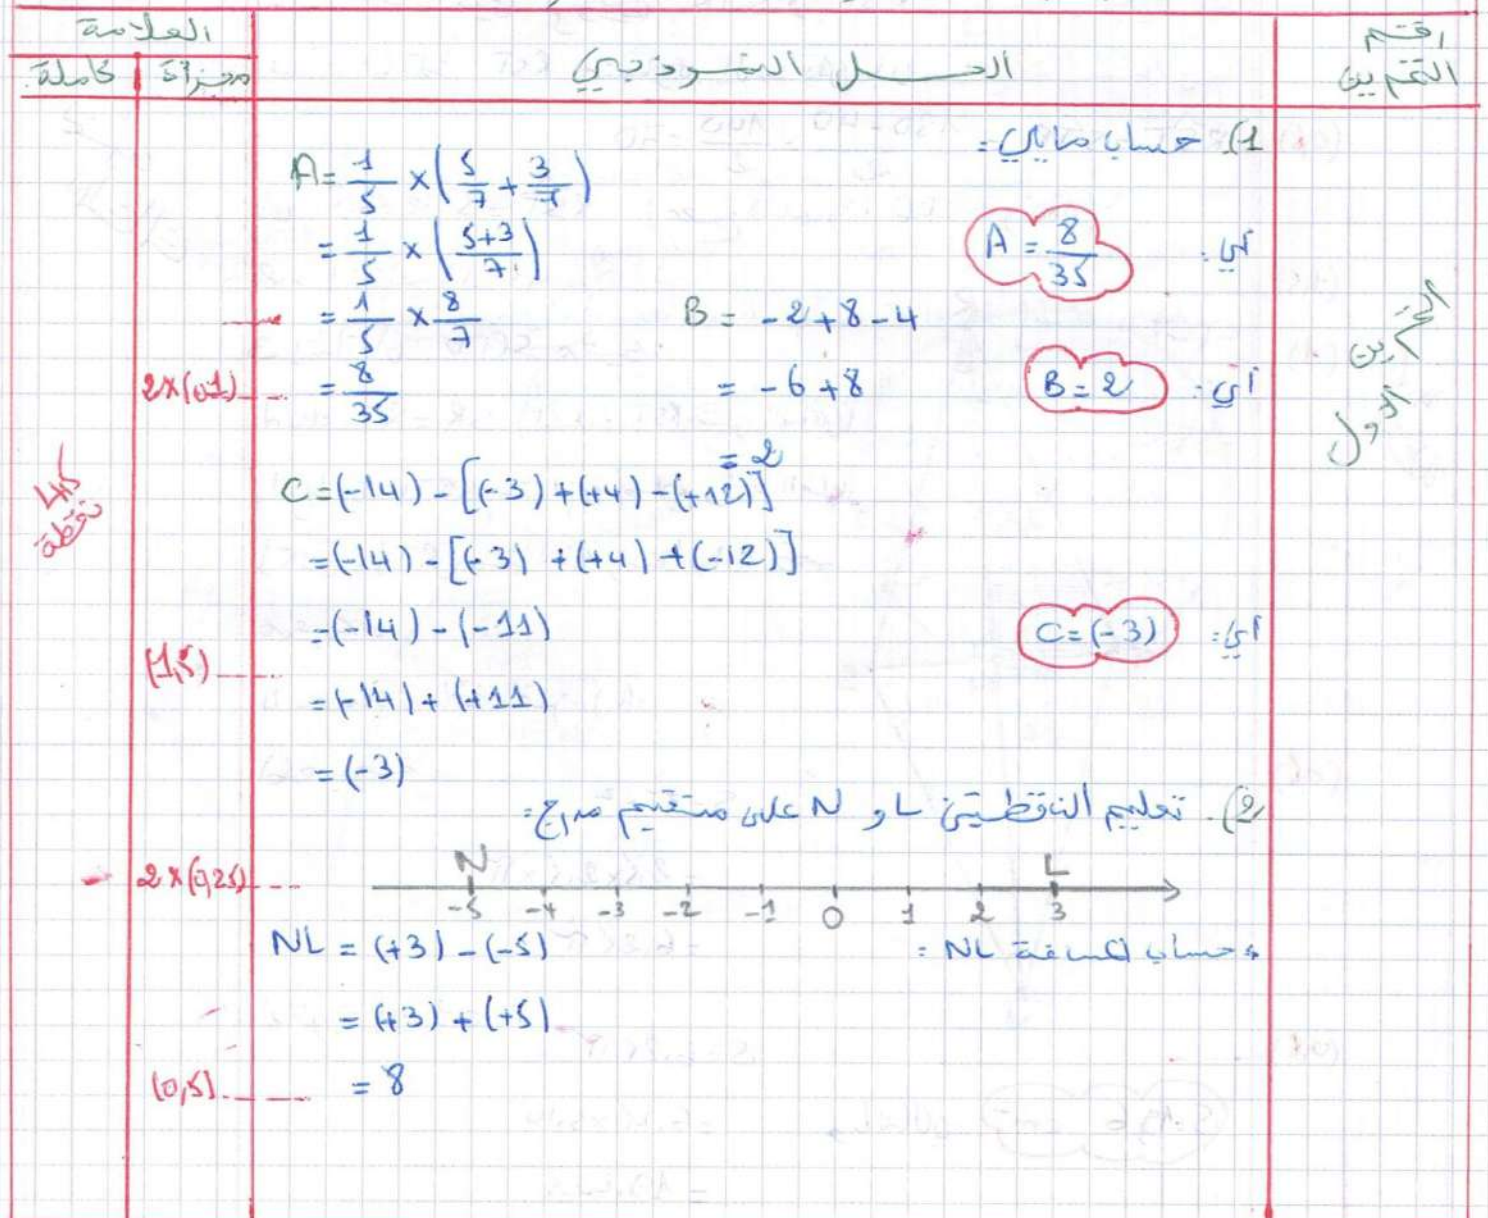 رقم التمرين
الحل النموذجي
العلامة
مجزأة
كاملة
التمرين الأول
1). حساب مايلي:
A = 1/5 × (5/7 + 3/7)
= 1/5 × (5+3/7)
= 1/5 × 8/7
= 8/35
أي: A = 8/35
B = -2+8-4
= -6+8
= 2
أي: B = 2
2×(01)
C = (-14) - [(-3) + (+4) - (+12)]
= (-14) - [(-3) + (+4) + (-12)]
= (-14) - (-11)
= (-14) + (+11)
= (-3)
أي: C = (-3)
(1,5)
2). تعليم النقطتين L و N على مستقيم مدرج:
N L
-5 -4 -3 -2 -1 0 1 2 3
2×(0,25)
* حساب المسافة NL :
NL = (+3) - (-5)
= (+3) + (+5)
= 8
(0,5)
4,5
نقطة